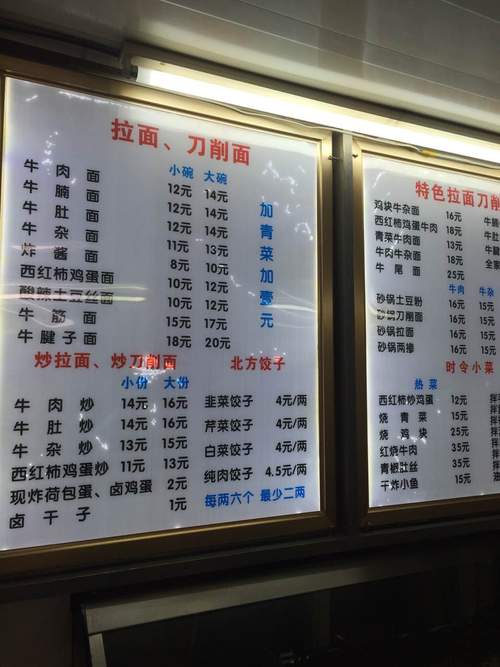 拉面、刀削面
小碗 大碗
牛肉面 12元 14元
牛腩面 12元 14元
牛肚面 12元 14元
牛杂面 11元 13元
炸酱面 8元 10元
西红柿鸡蛋面 10元 12元
酸辣土豆丝面 10元 12元
牛筋面 15元 17元
牛腱子面 18元 20元
加青菜加壹元
炒拉面、炒刀削面
小份 大份
牛肉炒 14元 16元
牛肚炒 14元 16元
牛杂炒 13元 15元
西红柿鸡蛋炒 11元 13元
现炸荷包蛋、卤鸡蛋 2元
卤干子 1元
北方饺子
韭菜饺子 4元/两
芹菜饺子 4元/两
白菜饺子 4元/两
纯肉饺子 4.5元/两
每两六个 最少二两
特色拉面刀削
鸡块牛杂面 16元
西红柿鸡蛋牛肉 18元
青菜牛肉面 13元
牛肉牛杂面 18元
牛尾面 25元
牛腩
牛肚
牛腱
全家
牛肉 牛杂
砂锅土豆粉 16元 15元
砂锅刀削面 16元 15元
砂锅拉面 16元 15元
砂锅两掺 16元 15元
时令小菜
热菜
西红柿炒鸡蛋 12元
烧青菜 15元
烧鸡块 25元
红烧牛肉 35元
青椒肚丝 35元
干炸小鱼 15元